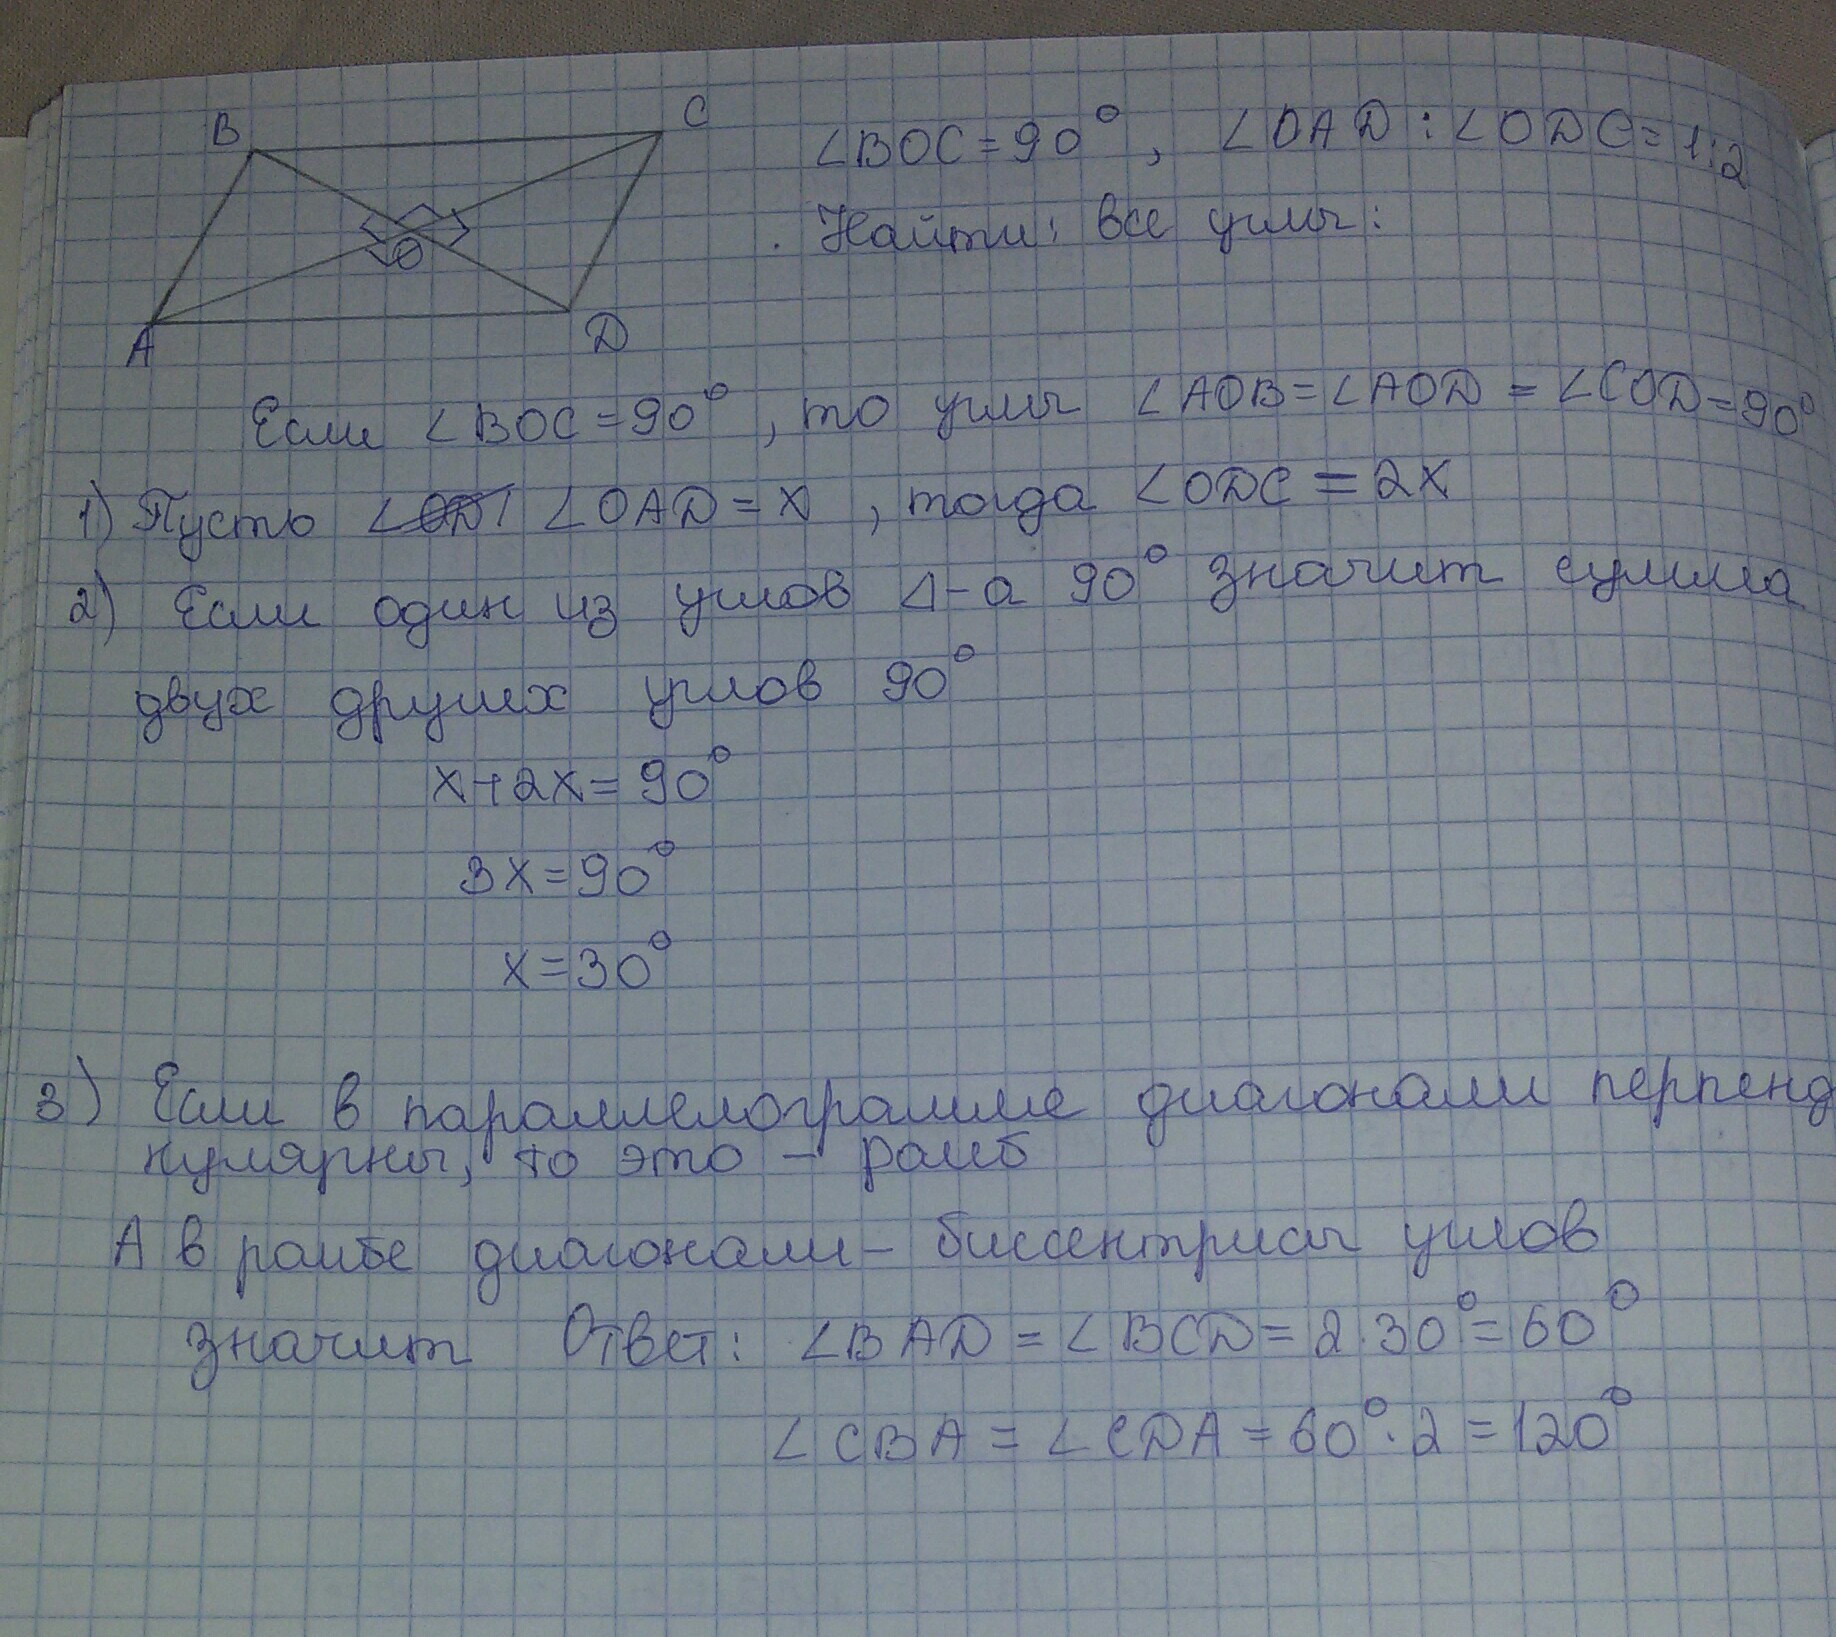 B
C
O
A
D
∠BOC = 90°, ∠OAD : ∠ODC = 1:2
Найти: все углы:
Если ∠BOC = 90°, то углы ∠AOB = ∠AOD = ∠COD = 90°
1) Пусть ∠OAD = x, тогда ∠ODC = 2x
2) Если один из углов Δ-а 90° значит сумма
двух других углов 90°
x+2x = 90°
3x = 90°
x = 30°
3) Если в параллелограмме диагонали перпенд
кулярны, то это – ромб
А в ромбе диагонали – биссектрисы углов
значит Ответ: ∠BAD = ∠BCD = 2·30° = 60°
∠CBA = ∠CDA = 60°·2 = 120°